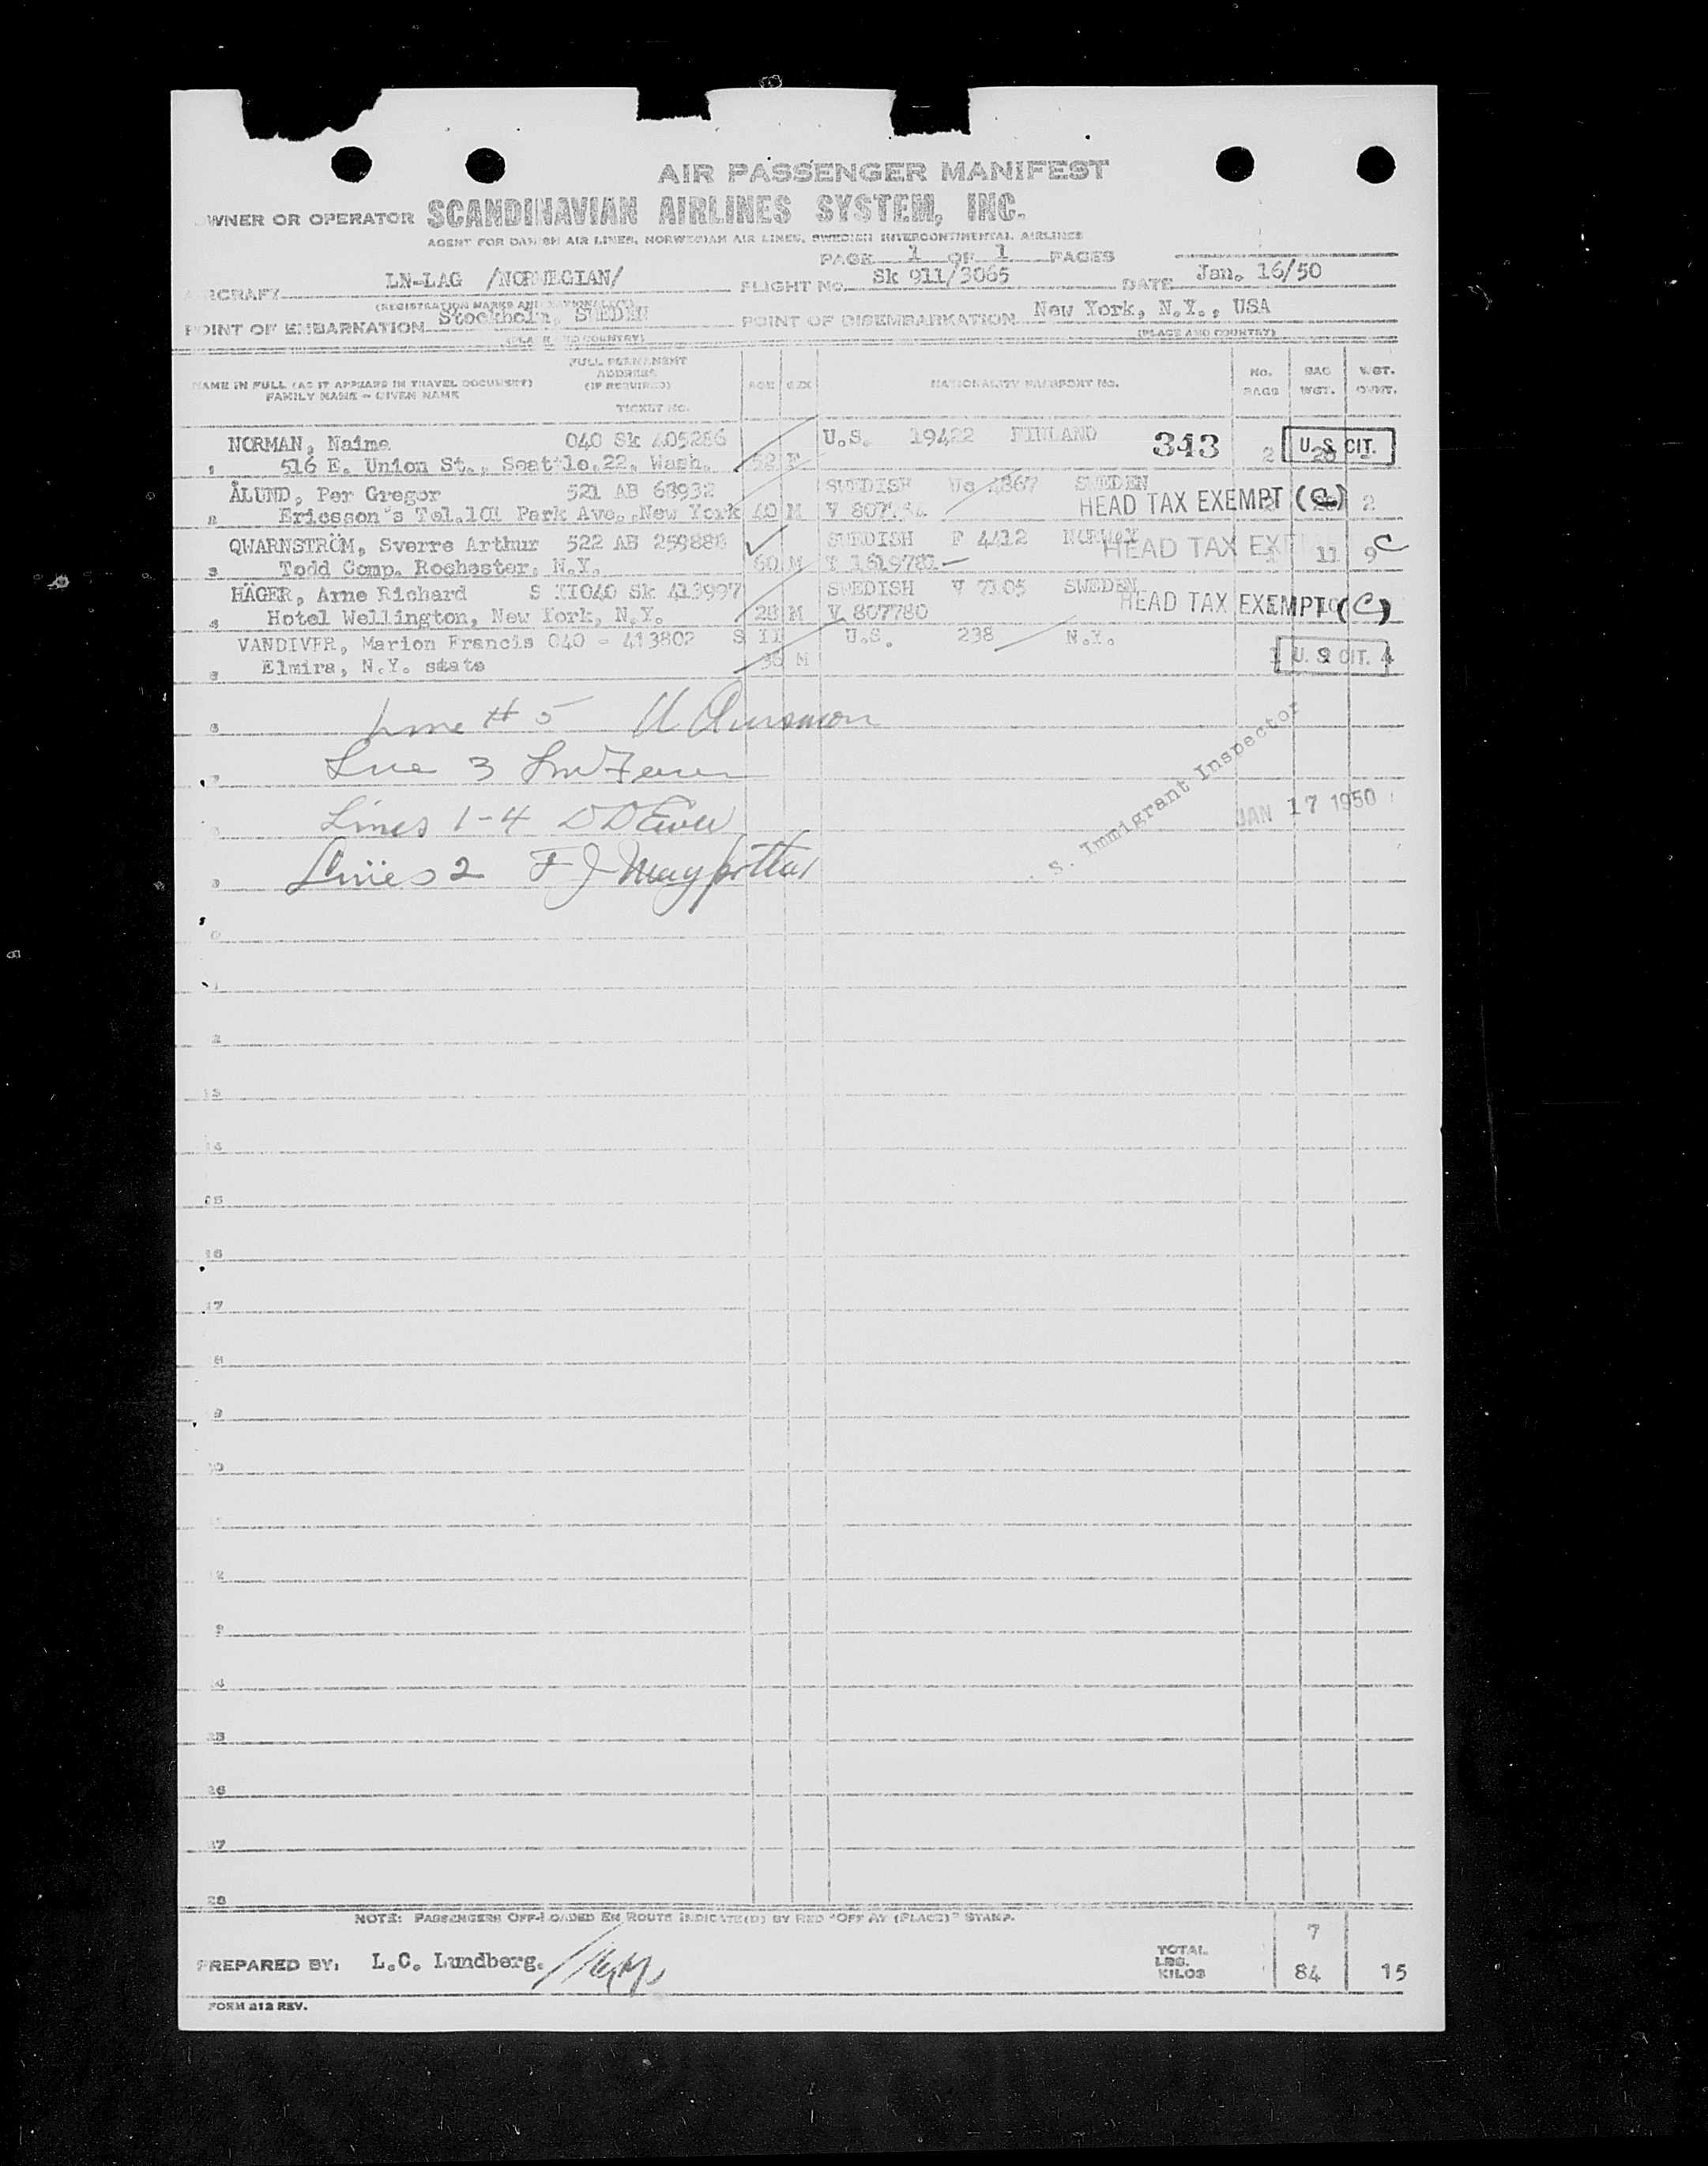 AIR PASSENGER MANIFEST
OWNER OR OPERATOR SCANDINAVIAN AIRLINES SYSTEM, INC.
AGENT FOR DANISH AIR LINES, NORWEGIAN AIR LINES, SWEDISH INTERCONTINENTAL AIRLINES
PAGE 1 OF 1 PAGES
AIRCRAFT LN-LAG /NORWEGIAN/ FLIGHT No. Sk 911/3065 DATE Jan. 16/50
(REGISTRATION MARKS AND NATIONALITY)
POINT OF EMBARKATION Stockholm, SWEDEN POINT OF DISEMBARKATION New York, N.Y., USA
(PLACE AND COUNTRY) (PLACE AND COUNTRY)
NAME IN FULL (AS IT APPEARS IN TRAVEL DOCUMENT)
FAMILY NAME - GIVEN NAME
FULL PERMANENT
ADDRESS
(IF REQUIRED)
TICKET NO.
AGE SEX NATIONALITY PASSPORT No. No. BAGS BAG WGT. WGT. OVWT.
NORMAN, Naima 040 Sk 405286 U.S. 19422 FINLAND 343 2 U.S. CIT.
1 516 E. Union St., Seattle, 22, Wash. 52 F
ÅLUND, Per Gregor 521 AB 68932 SWEDISH 4867 SWEDEN
2 Ericsson's Tel. 101 Park Ave., New York 40 M HEAD TAX EXEMPT (C) 2
QWARNSTRÖM, Sverre Arthur 522 AB 259888 SWEDISH F 4412 NORWAY HEAD TAX
3 Todd Comp. Rochester, N.Y. 60 M 1 11 9 C
HÄGER, Arne Richard S II040 Sk 413997 SWEDISH V 7105 SWEDEN
4 Hotel Wellington, New York, N.Y. 28 M V 807780 HEAD TAX EXEMPT (C)
VANDIVER, Marion Francis 040 - 413802 S II U.S. 238 N.Y.
5 Elmira, N.Y. state 36 M 1 U.S. CIT. 4
6 Line # 5
7 Line 3
Lines 1-4
9 Lines 2 F J
S. Immigrant Inspector
JAN 17 1950
0
1
2
13
14
15
16
17
8
9
20
2
3
24
25
26
27
28
NOTE: PASSENGERS OFF-LOADED EN ROUTE INDICATE(D) BY RED "OFF AT (PLACE)" STAMP.
PREPARED BY: L.C. Lundberg.
TOTAL LBS. KILOS 7 84 15
FORM 212 REV.